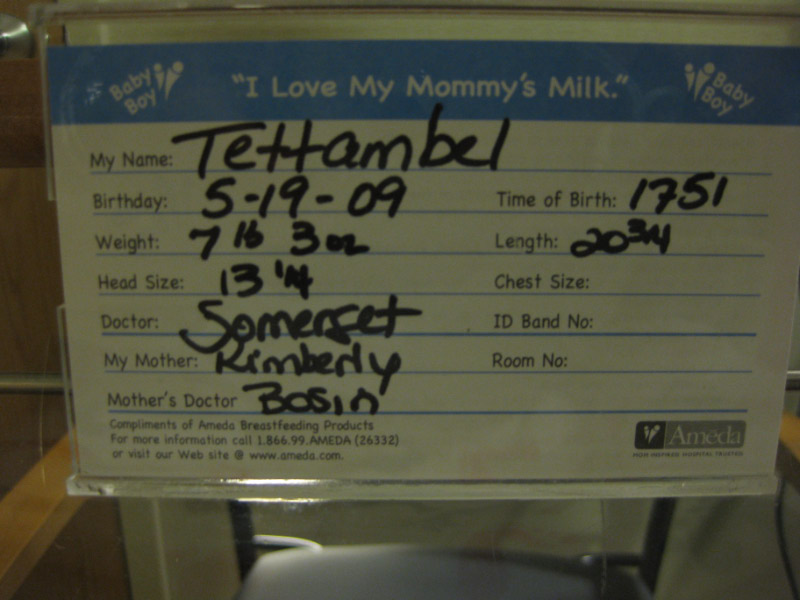 Baby Boy "I Love My Mommy's Milk." Baby Boy
My Name: Tettambel
Birthday: 5-19-09 Time of Birth: 1751
Weight: 7 lb 3 oz Length: 20 3/4
Head Size: 13 1/4 Chest Size:
Doctor: Somerset ID Band No:
My Mother: Kimberly Room No:
Mother's Doctor Bosin
Compliments of Ameda Breastfeeding Products
For more information call 1.866.99.AMEDA (26332)
or visit our Web site @ www.ameda.com.
Ameda